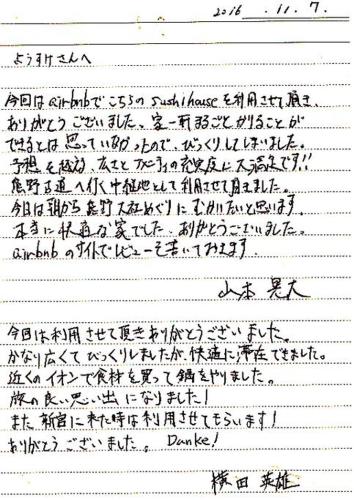 2016 . 11. 7.
ようすけさんへ
今回はairbnbでこちらのsushihouseを利用させて頂き、
ありがとうございました。家一軒まるごとかりることが
できるとは思っていなかったので、びっくりしてしまいました。
予想を 広さとアメニティの充実度に大満足です!!
熊野古道へ行く中継地として利用させて頂きました。
今日は朝から熊野大社めぐりにむかいたいと思います。
本当に快適な家でした。ありがとうございました。
airbnbのサイトでレビューを書いておきます。
山本 晃大
今回は利用させて頂きありがとうございました。
かなり広くてびっくりしましたが、快適に滞在できました。
近くのイオンで食材を買って鍋をやりました。
旅の良い思い出になりました!
また新宮に来た時は利用させてもらいます!
ありがとうございました。 Danke!
横田 英雄